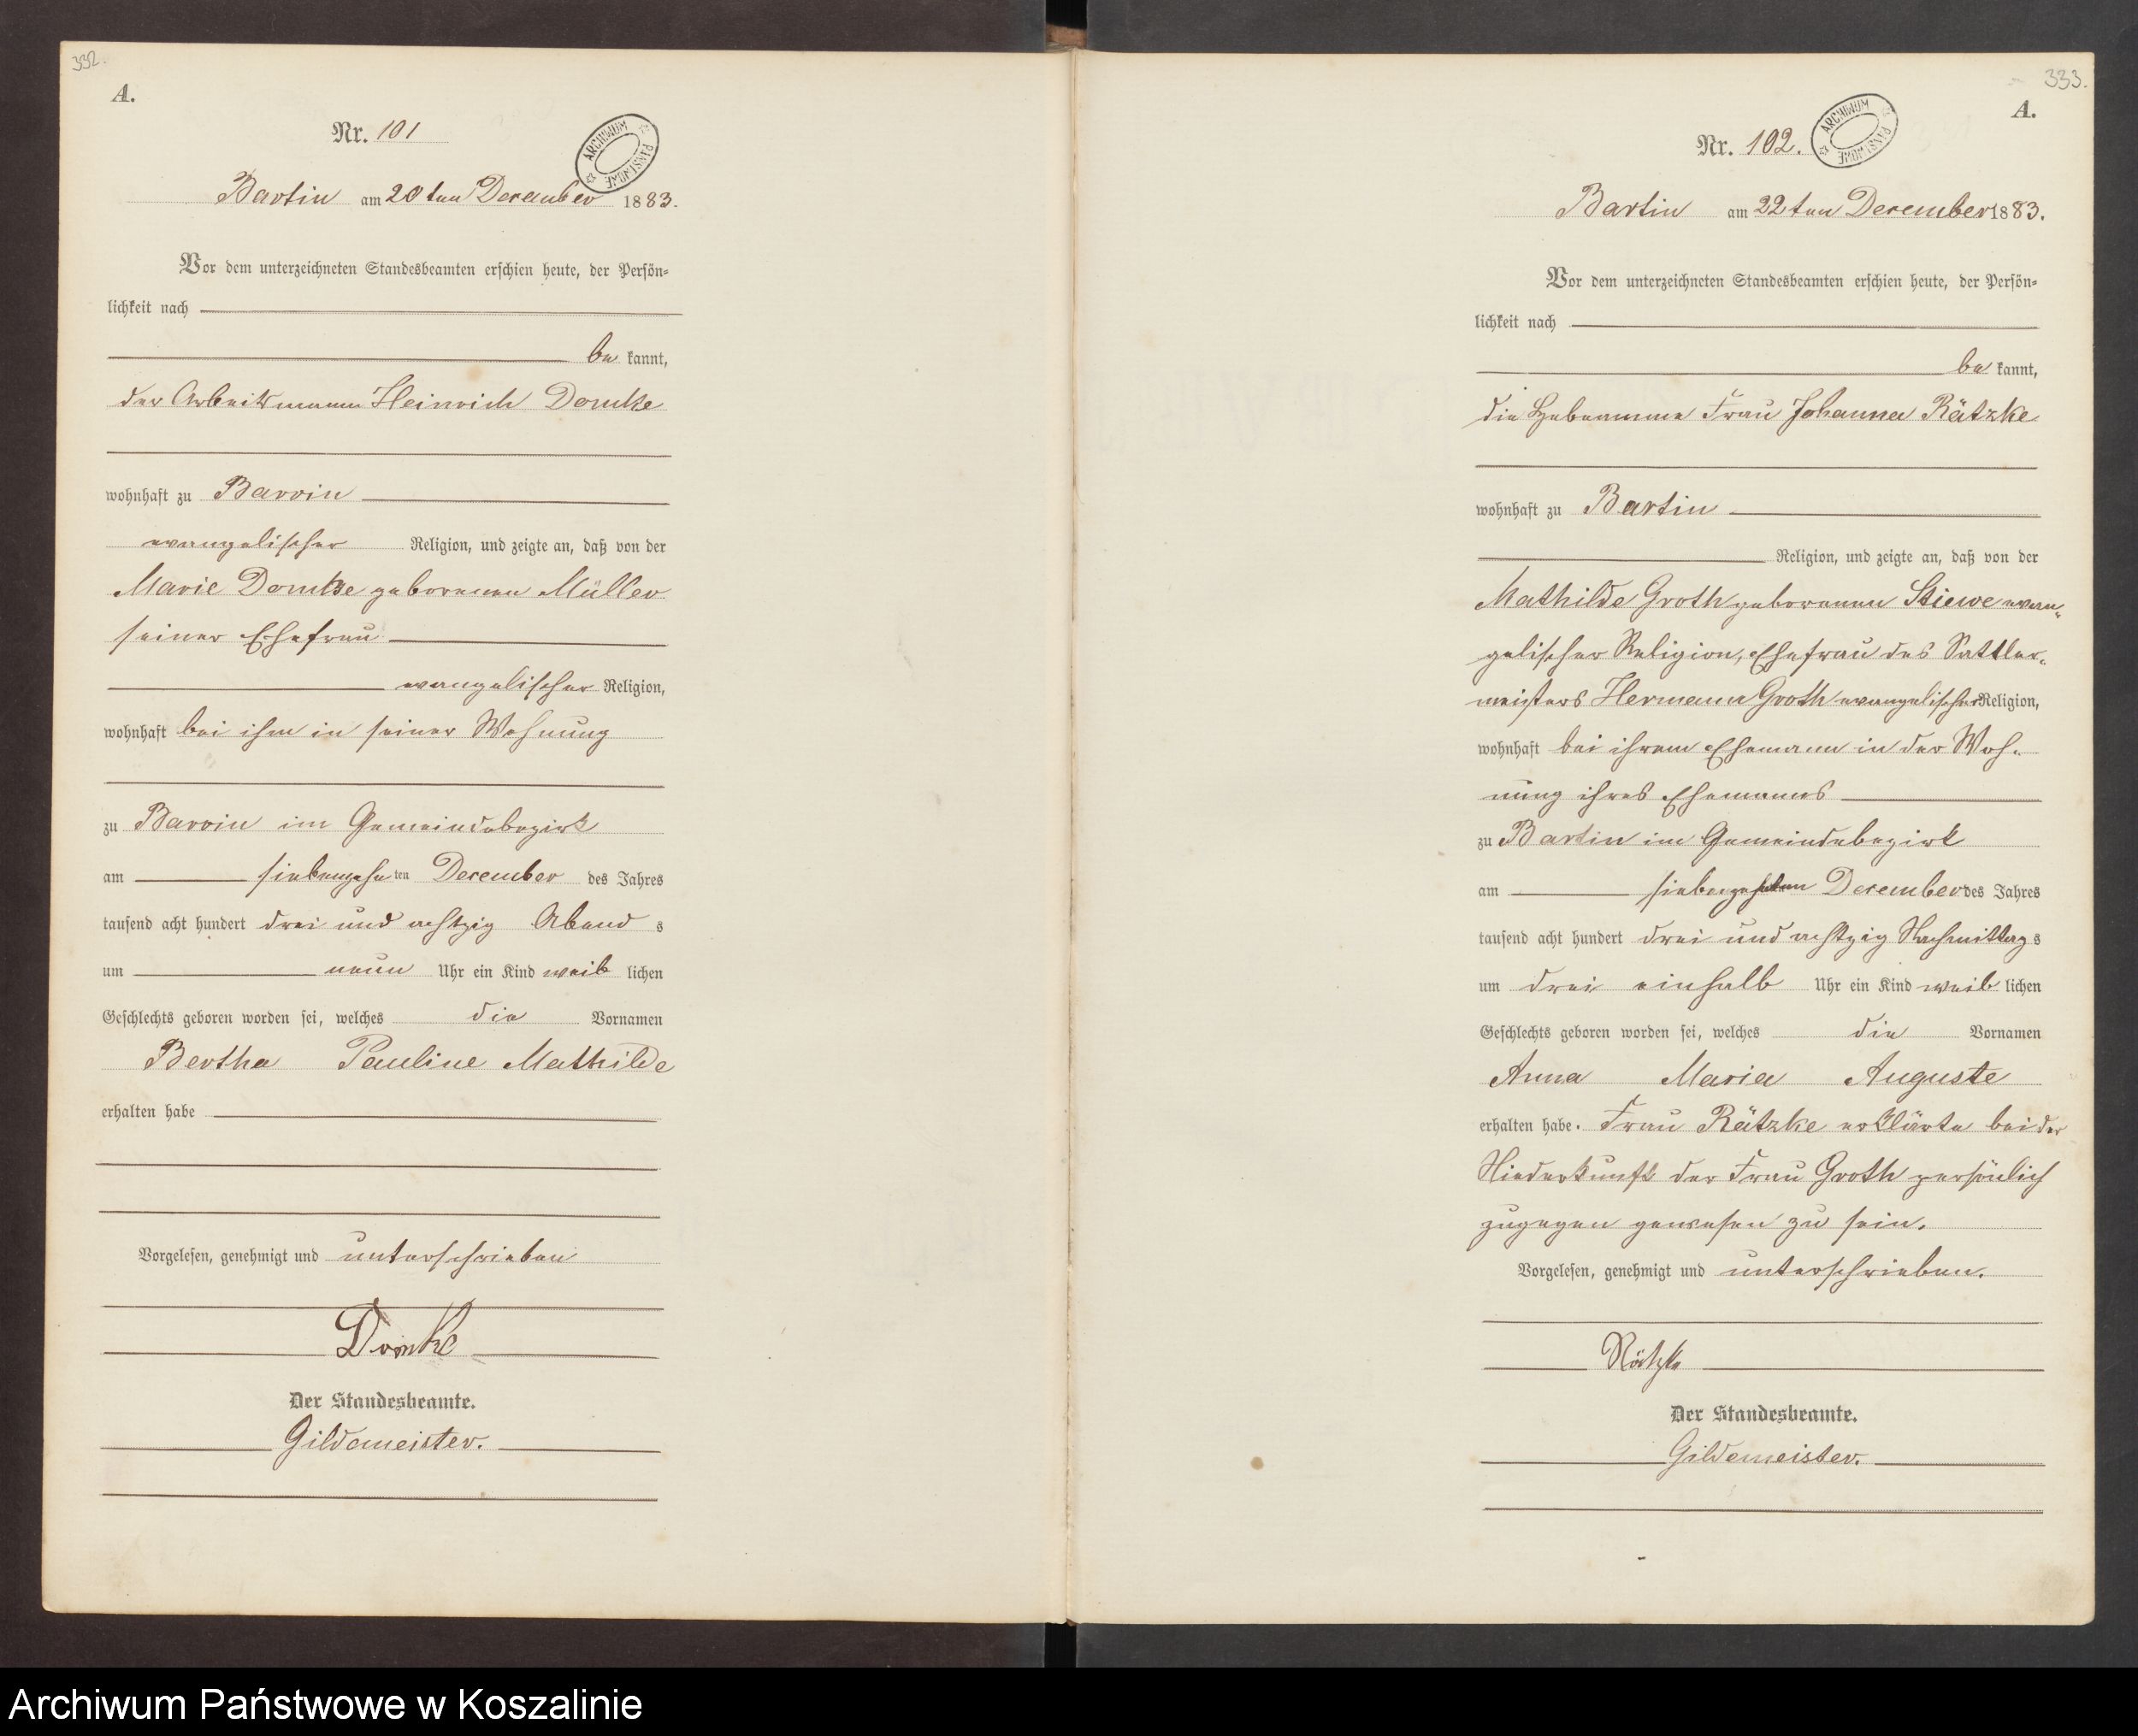 332.
A.
Nr. 101
ARCHIWUM PAŃSTWOWE
Bartin am 20ten December 1883.
Vor dem unterzeichneten Standesbeamten erschien heute, der Persön-
lichkeit nach
be kannt,
der Arbeitsmann Heinrich Domke
wohnhaft zu Barvin
evangelischer Religion, und zeigte an, daß von der
Marie Domke geborenen Müller
seiner Ehefrau
evangelischer Religion,
wohnhaft bei ihm in seiner Wohnung
zu Barvin im Gemeindebezirk
am siebenzehnten December des Jahres
tausend acht hundert drei und achtzig Abends
um neun Uhr ein Kind weiblichen
Geschlechts geboren worden sei, welches die Vornamen
Bertha Pauline Mathilde
erhalten habe
Vorgelesen, genehmigt und unterschrieben
Domke
Der Standesbeamte.
Gildemeister.
333.
A.
Nr. 102.
ARCHIWUM PAŃSTWOWE
Bartin am 22ten December 1883.
Vor dem unterzeichneten Standesbeamten erschien heute, der Persön-
lichkeit nach
be kannt,
die Hebeamme Frau Johanna Rätzke
wohnhaft zu Bartin
Religion, und zeigte an, daß von der
Mathilde Groth geborenen Stiewe evan-
gelischer Religion, Ehefrau des Sattler-
meisters Hermann Groth evangelischer Religion,
wohnhaft bei ihrem Ehemann in der Woh-
nung ihres Ehemanns
zu Bartin im Gemeindebezirk
am siebenzehnten December des Jahres
tausend acht hundert drei und achtzig Nachmittags
um drei einhalb Uhr ein Kind weiblichen
Geschlechts geboren worden sei, welches die Vornamen
Anna Maria Auguste
erhalten habe. Frau Rätzke erklärte bei der
Niederkunft der Frau Groth persönlich
zugegen gewesen zu sein.
Vorgelesen, genehmigt und unterschrieben.
Rätzke
Der Standesbeamte.
Gildemeister.
Archiwum Państwowe w Koszalinie